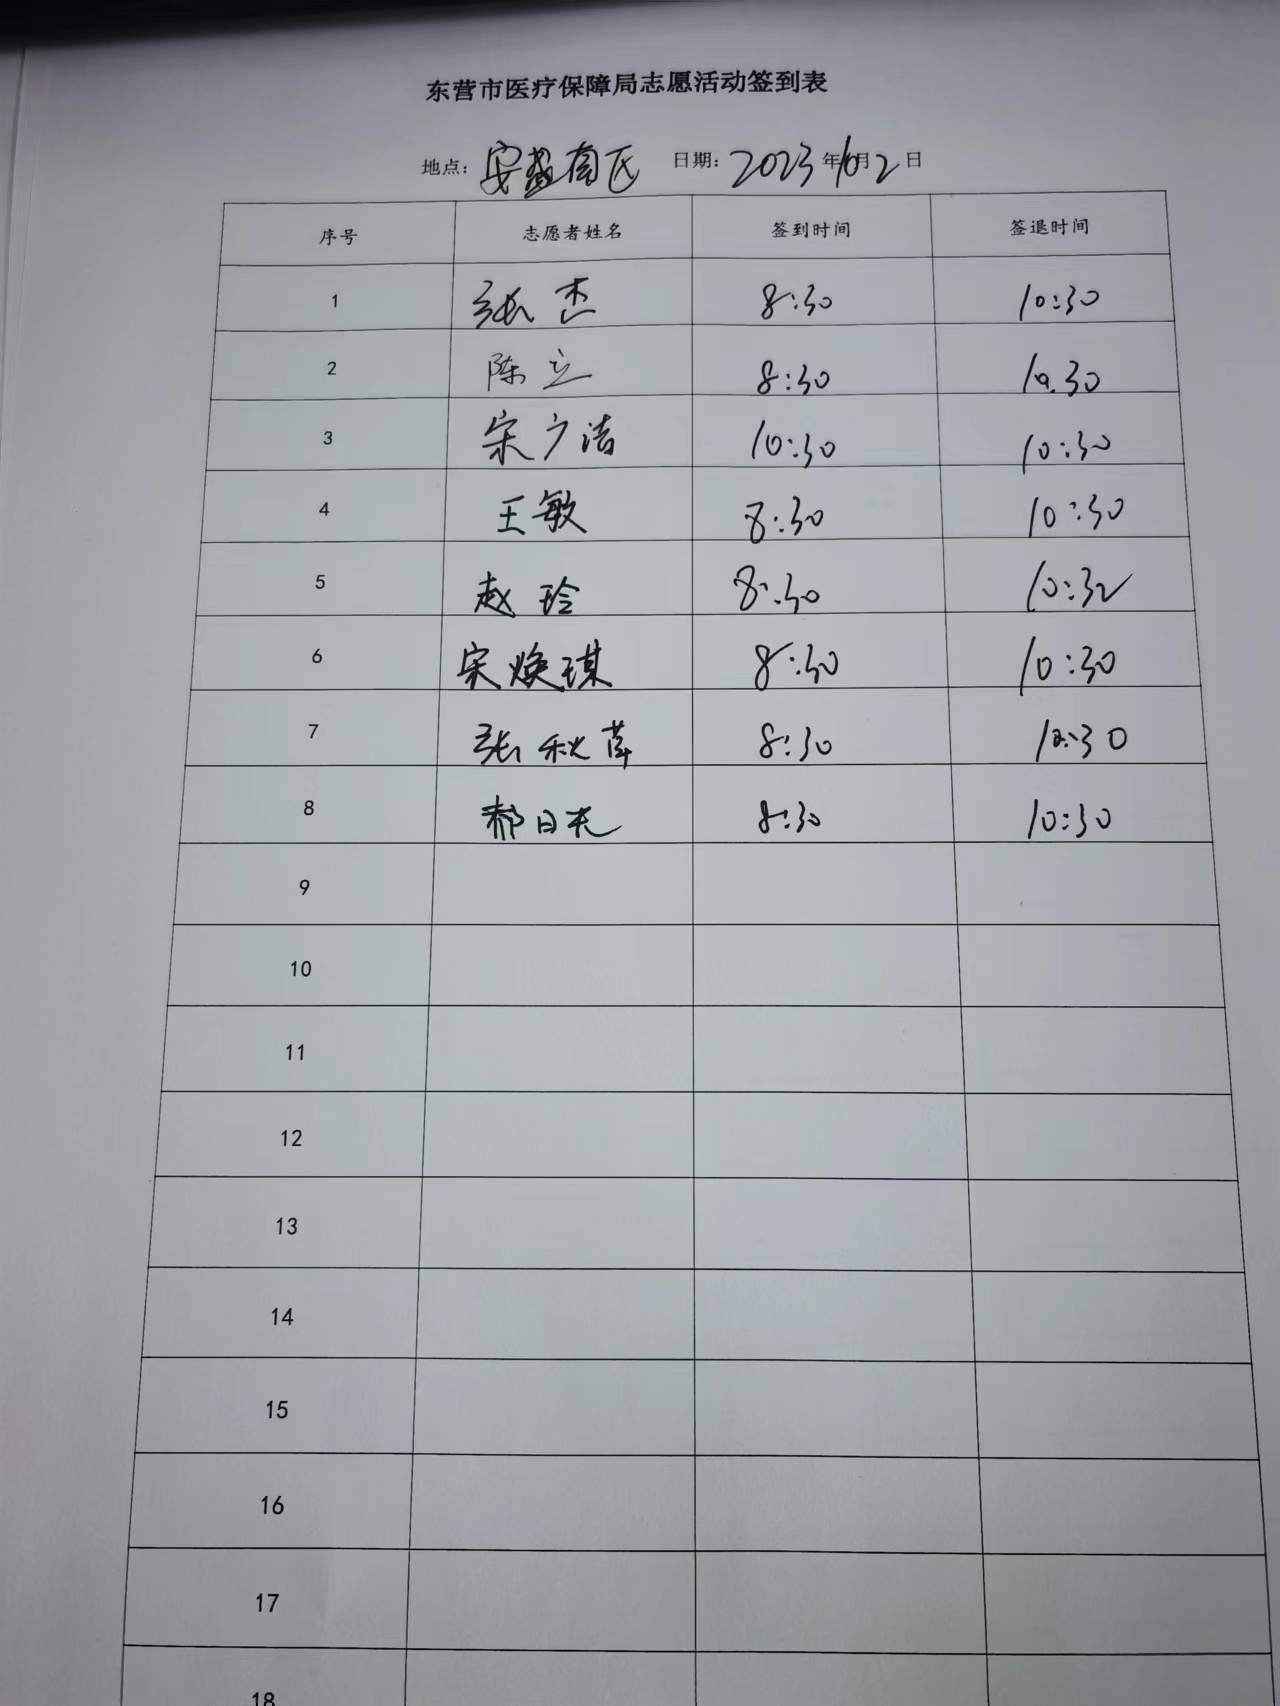 东营市医疗保障局志愿活动签到表
地点：安盘南区 日期：2023年10月2日
序号 志愿者姓名 签到时间 签退时间
1 张杰 8:30 10:30
2 陈立 8:30 10.30
3 宋广洁 10:30 10:30
4 王敏 8:30 10:30
5 赵玲 8:30 10:32
6 宋焕琪 8:30 10:30
7 张秋萍 8:30 10:30
8 郝日 8:30 10:30
9
10
11
12
13
14
15
16
17
18